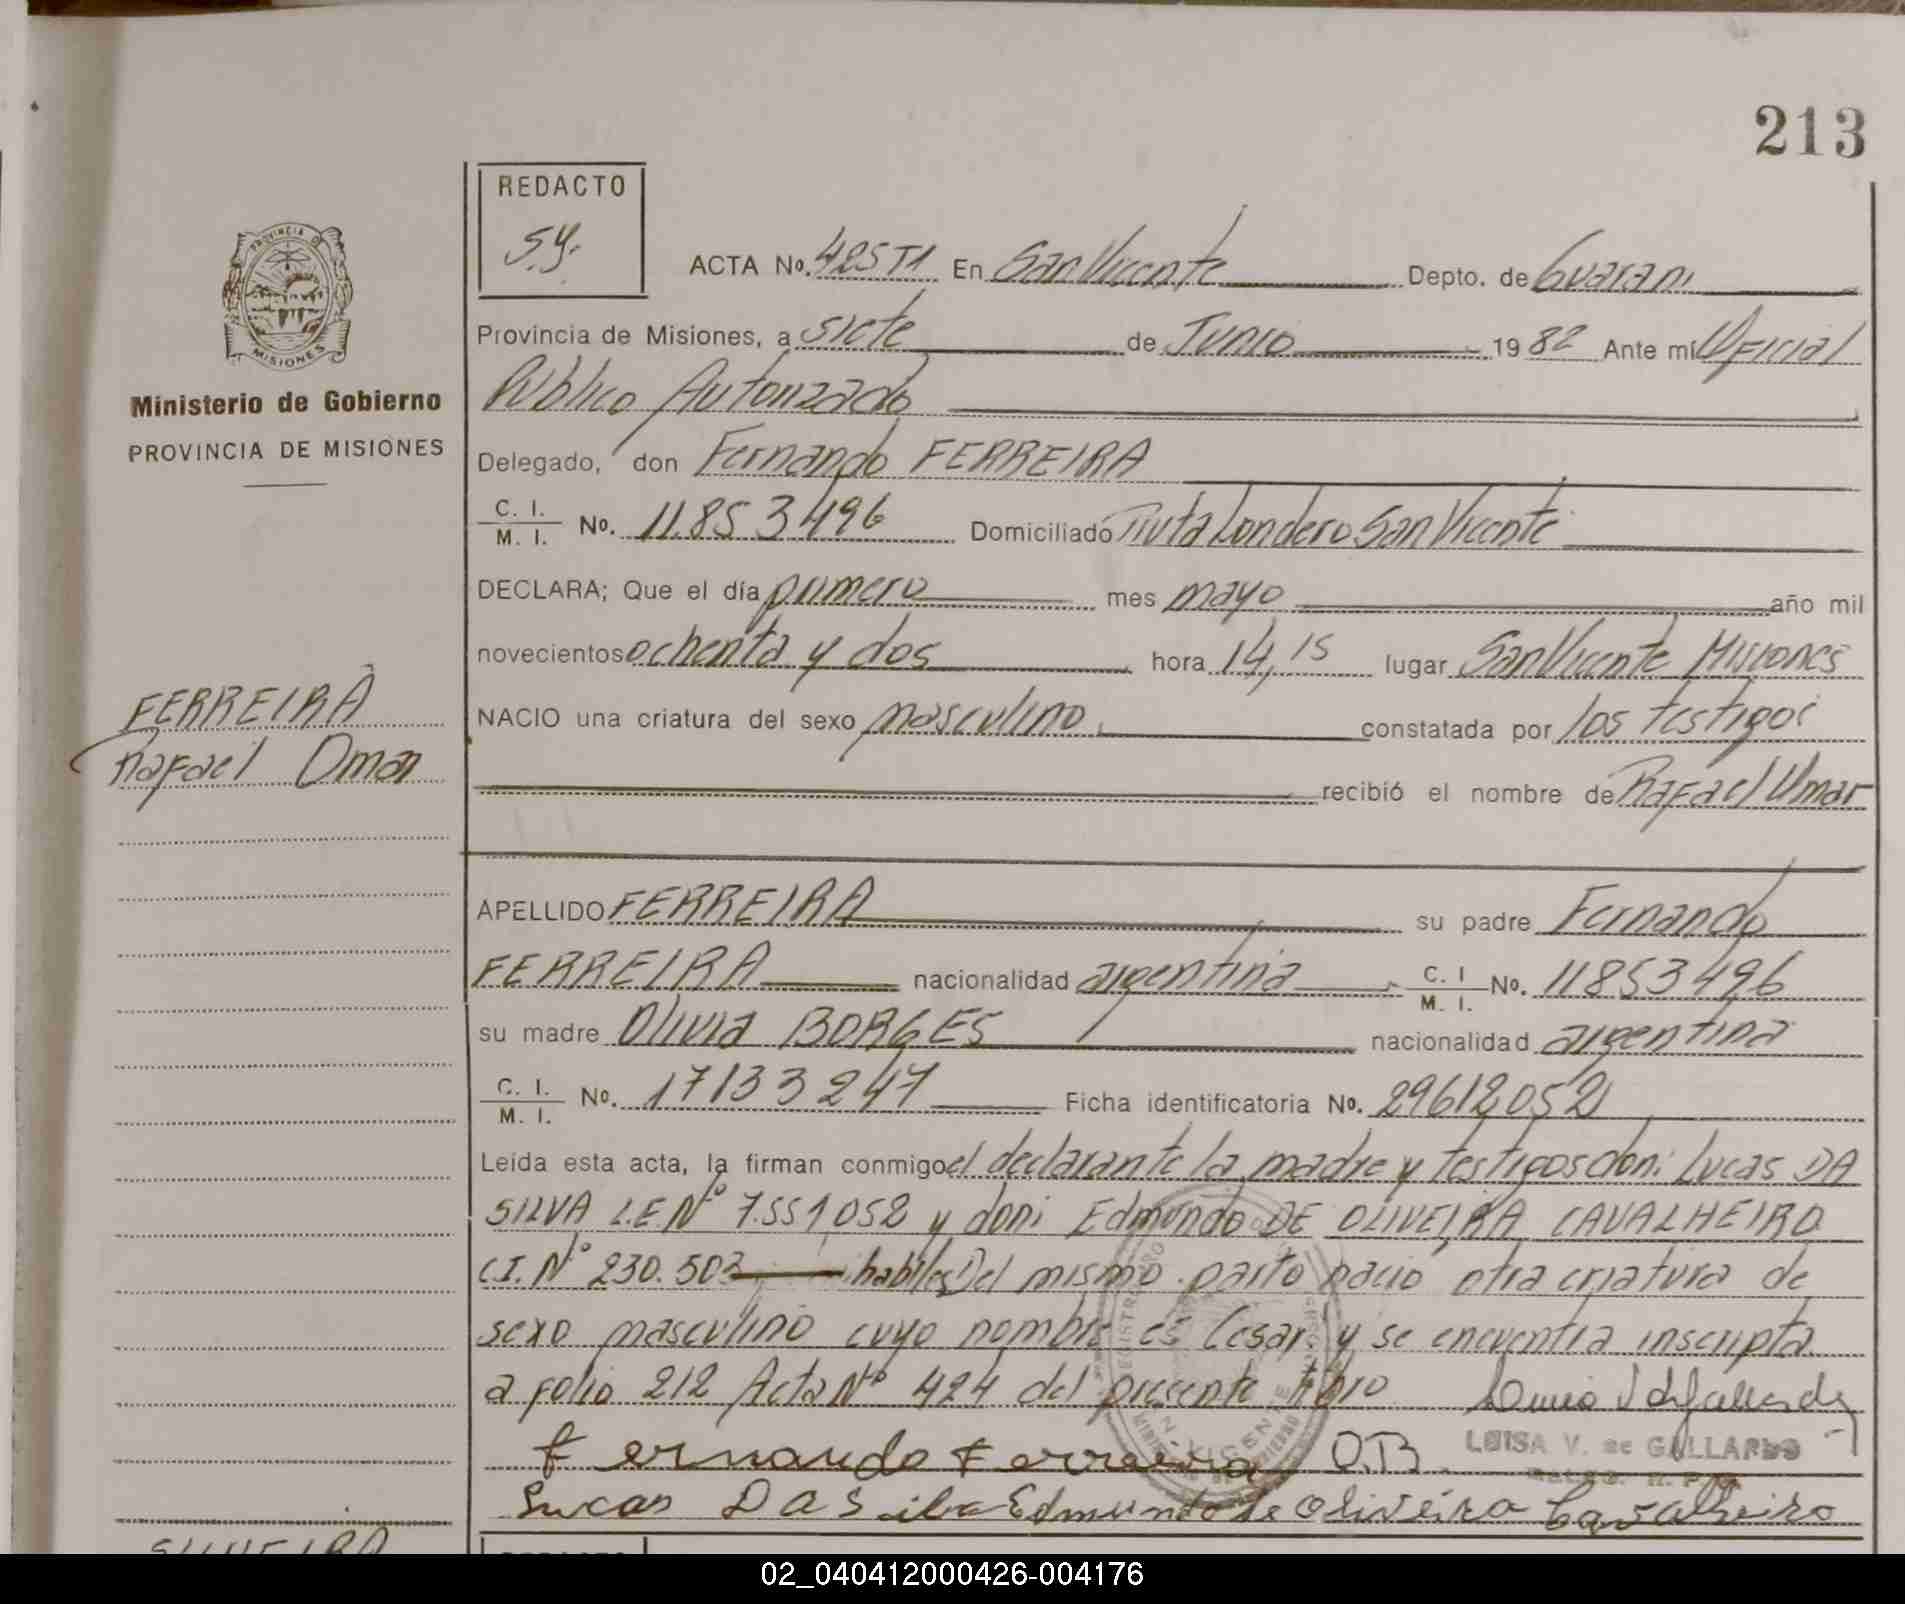 213
REDACTO
S.Y.
PROVINCIA DE
MISIONES
Ministerio de Gobierno
PROVINCIA DE MISIONES
ACTA No. 425 T1 En San Vicente Depto. de Guarani
Provincia de Misiones, a siete de Junio 1982 Ante mí Oficial
Público Autorizado
Delegado, don Fernando FERREIRA
C. I. / M. I. No. 11.853496 Domiciliado Ruta Londero San Vicente
DECLARA; Que el día primero mes mayo año mil
novecientos ochenta y dos hora 14,15 lugar San Vicente Misiones
FERREIRA
Rafael Omar
NACIO una criatura del sexo masculino constatada por los testigos
recibió el nombre de Rafael Omar
APELLIDO FERREIRA su padre Fernando
FERREIRA nacionalidad argentina C. I / M. I. No. 11853496
su madre Olivia BORGES nacionalidad argentina
C. I. / M. I. No. 17133247 Ficha identificatoria No. 29612052
Leída esta acta, la firman conmigo el declarante la madre y testigos don: Lucas DA
SILVA L.E Nº 7.551,052 y don: Edmundo DE OLIVEIRA CAVALHEIRO
C.I. Nº 230.503 habiles Del mismo parto nacio otra criatura de
sexo masculino cuyo nombre es Cesar y se encuentra inscripta
a folio 212 Acta Nº 424 del presente libro
Fernando Ferreira O.B. LUISA V. de GALLARDO
Lucas DA Silva Edmundo de Oliveira Cavalheiro
02_040412000426-004176